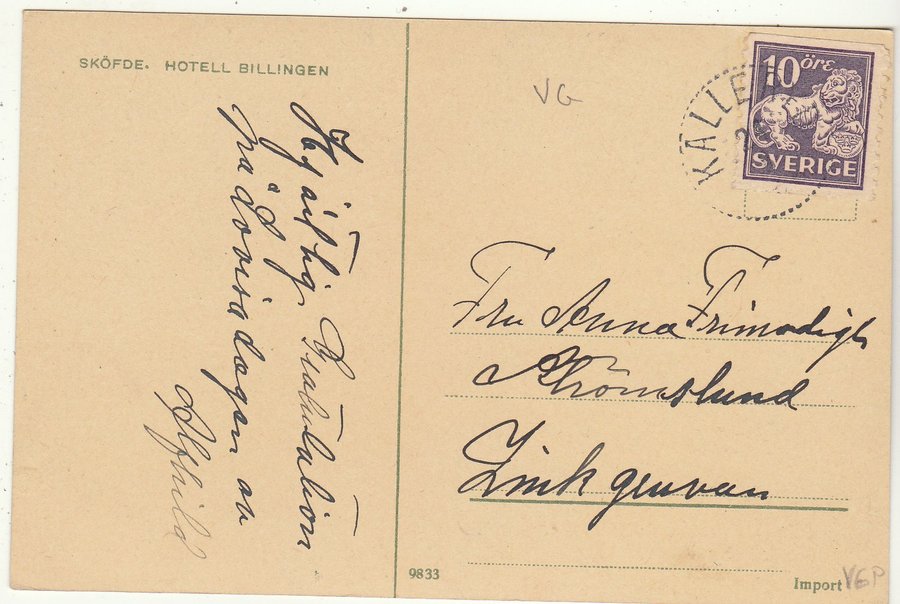 SKÖFDE. HOTELL BILLINGEN
Hjärtlig Gratulation
på Lovisadagen av
Alfhild
VG
KÄLLE
10 öre
SVERIGE
Fru Anna Frimodigh
Strömslund
Zinkgruvan
9833
Import
VGP